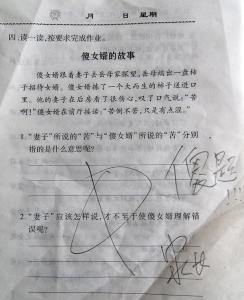 月 日 星期
四、读一读,按要求完成作业。
傻女婿的故事
傻女婿跟着妻子去岳母家探望,岳母端出一盘柿
子招待女婿。傻女婿拣了一个大而生的柿子送进口
里。他的妻子在后房看了很伤心,叹了口气说:“苦
啊!”傻女婿在前厅接话:“苦倒不苦,只是有点涩。”
1.“妻子”所说的“苦”与“傻女婿”所说的“苦”分别
指的是什么意思呢?
傻是
2.“妻子”应该怎样说,才不至于使傻女婿理解错
误呢?